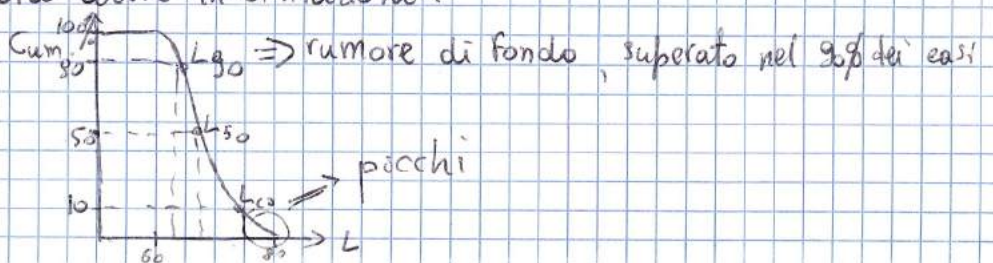 100%
Cum.
90 L90 ⇒ rumore di fondo, superato nel 90% dei casi
50 L50
picchi
10 L10
60 80 L